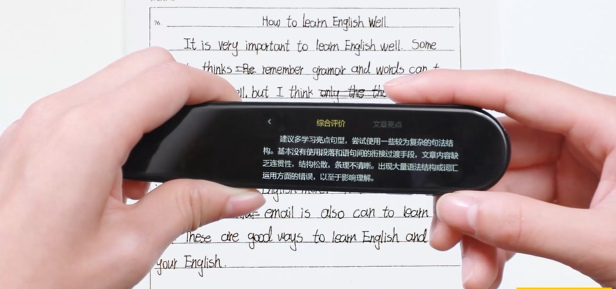 How to learn English Well.
It is very important to learn English well. Some
thinks remember gramar and words can
but I think only the
综合评价 文章亮点
建议多学习亮点句型，尝试使用一些较为复杂的句法结
构。基本没有使用段落和语句间的衔接过渡手段，文章内容缺
乏连贯性，结构松散，条理不清晰。出现大量语法结构或词汇
运用方面的错误，以至于影响理解。
email is also can to learn
These are good ways to learn English and
your English.